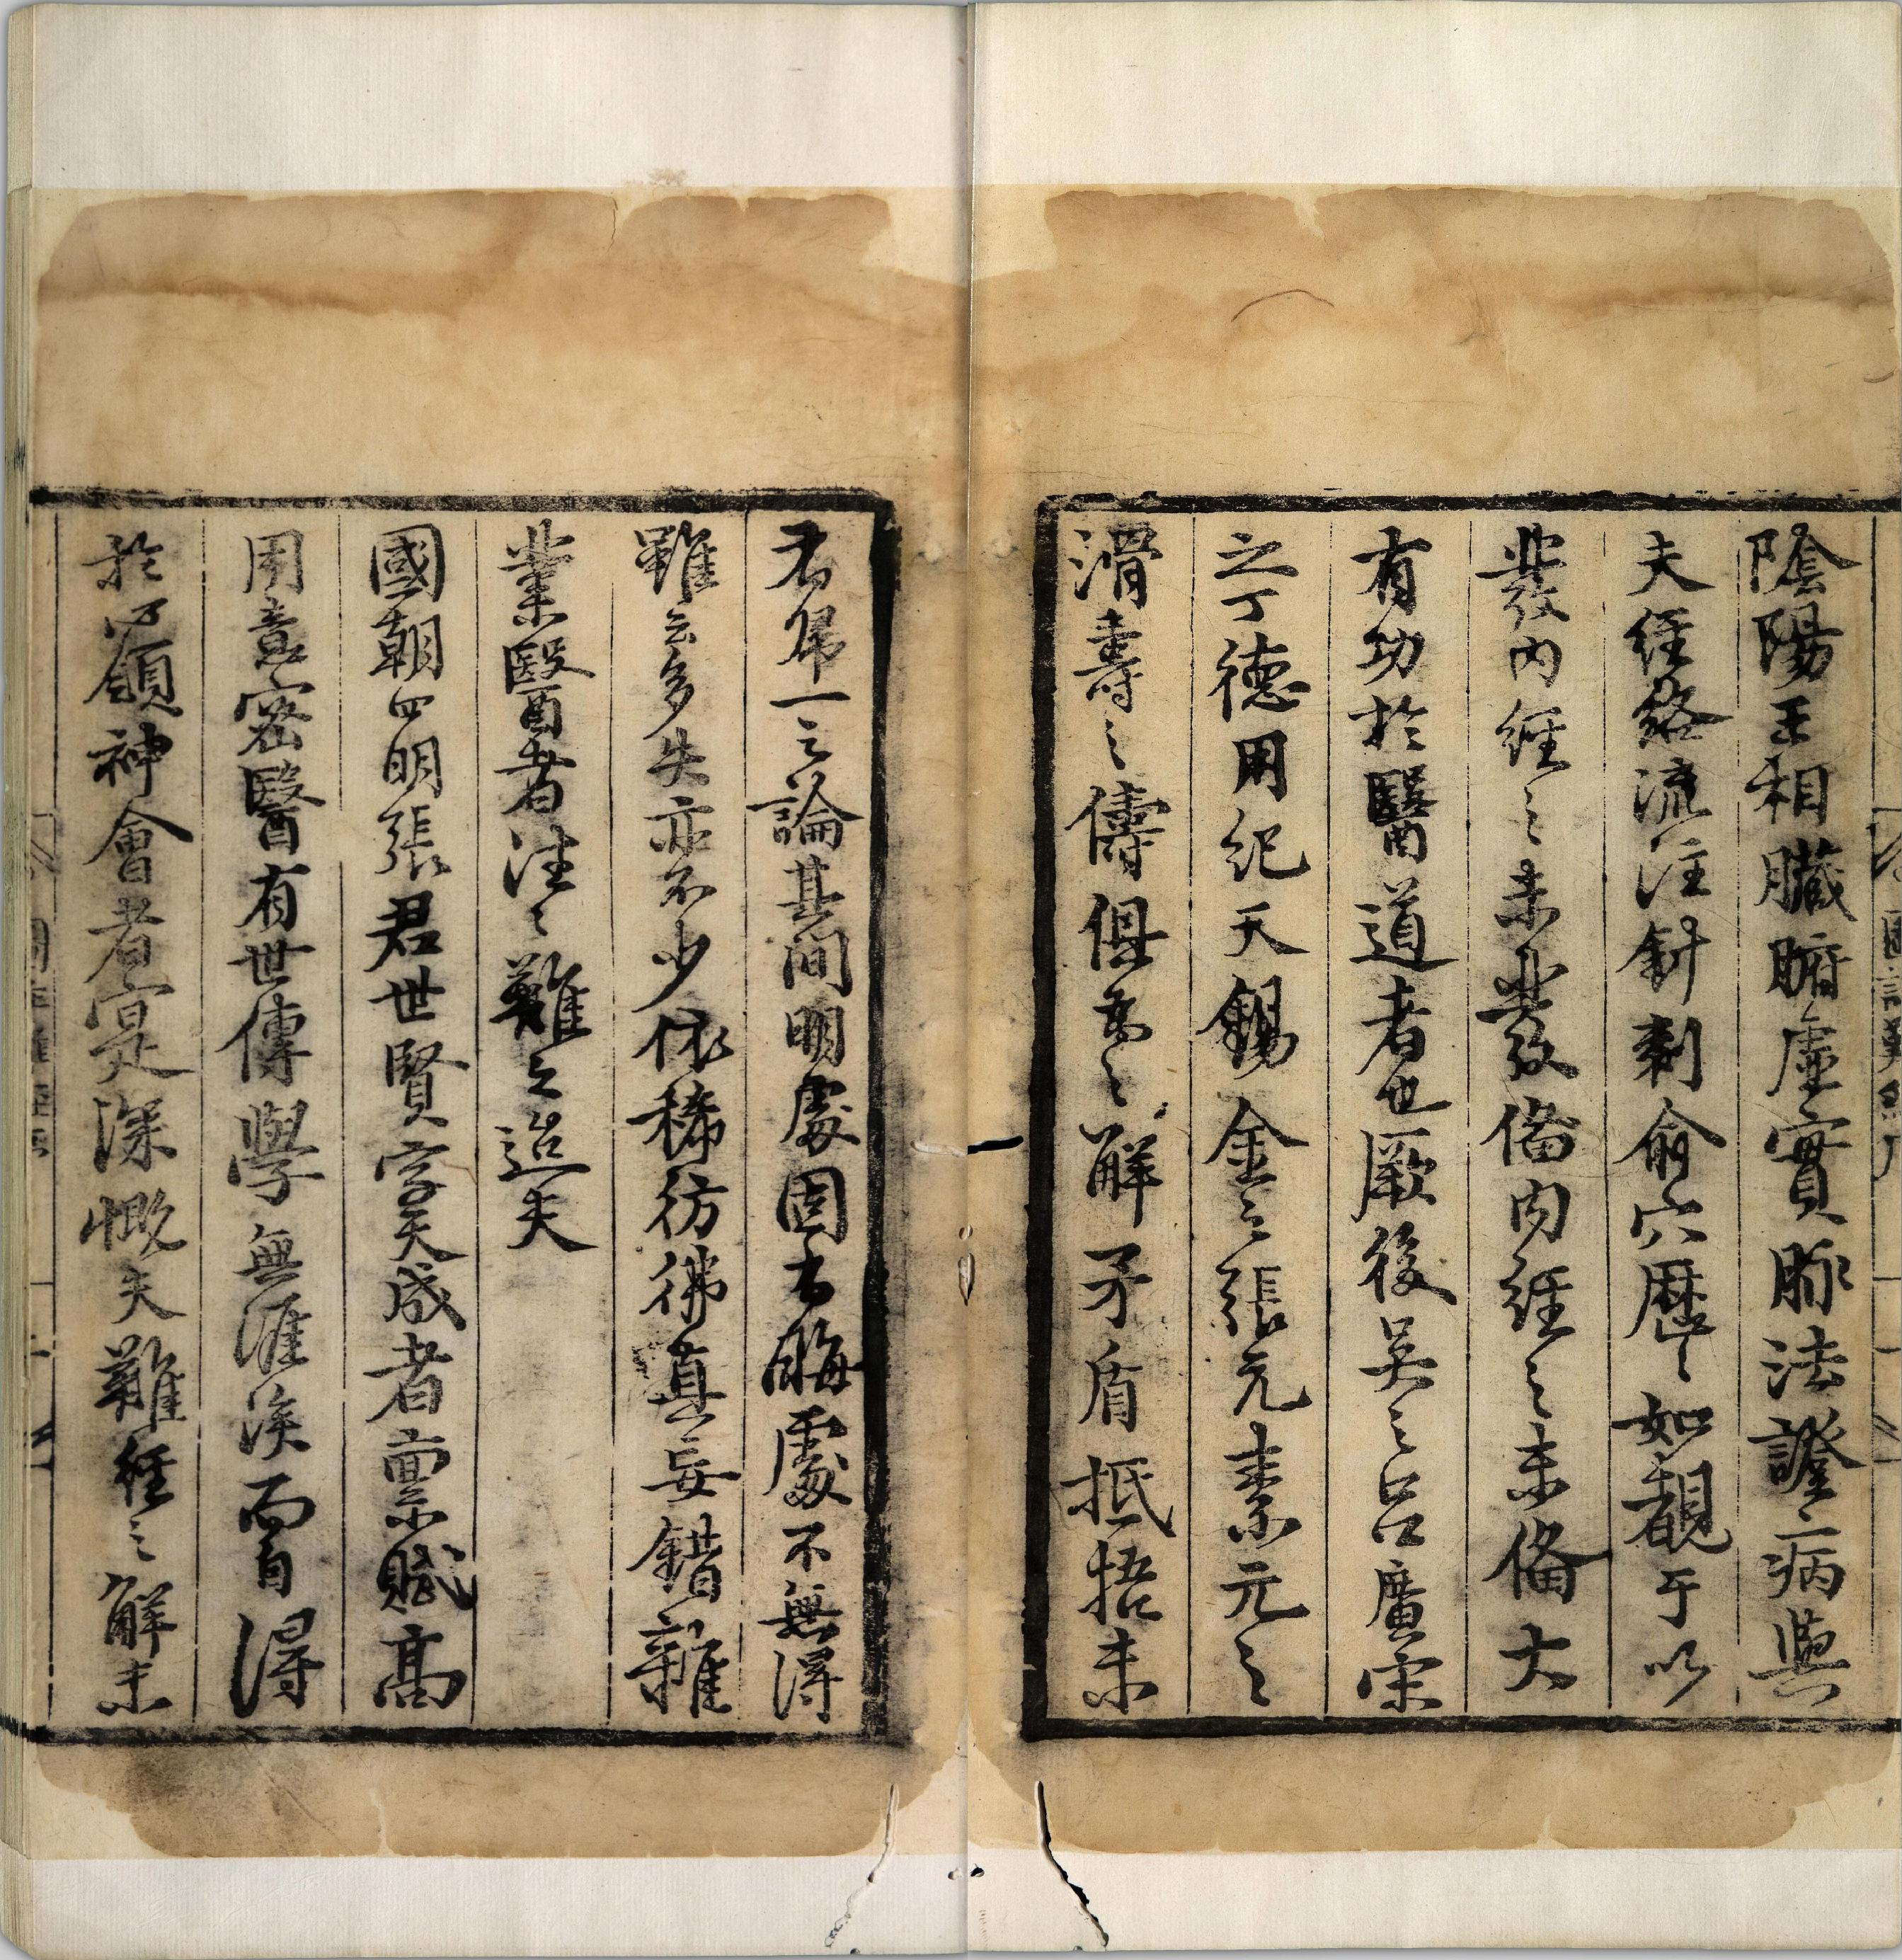 陰陽王相臓腑虛實脉法證病與
夫經絡流注針刺俞穴歴〻如覩于以
發內經之未發備内經之未備大
有功於醫道者也厥後吳之呂廣宋
之丁德用紀天錫金之張元素元之
滑壽之儔俱為之解矛盾抵捂未
君歸一之論其間明處固有晦處不無得
雖云多失亦不少依稀彷彿真妄錯雜
業醫者注〻難之迨夫
國朝四明張君世賢字天成者禀賦高
用意密醫有世傳學無涯涘而自得
於心領神會者寔深慨夫難經之解未